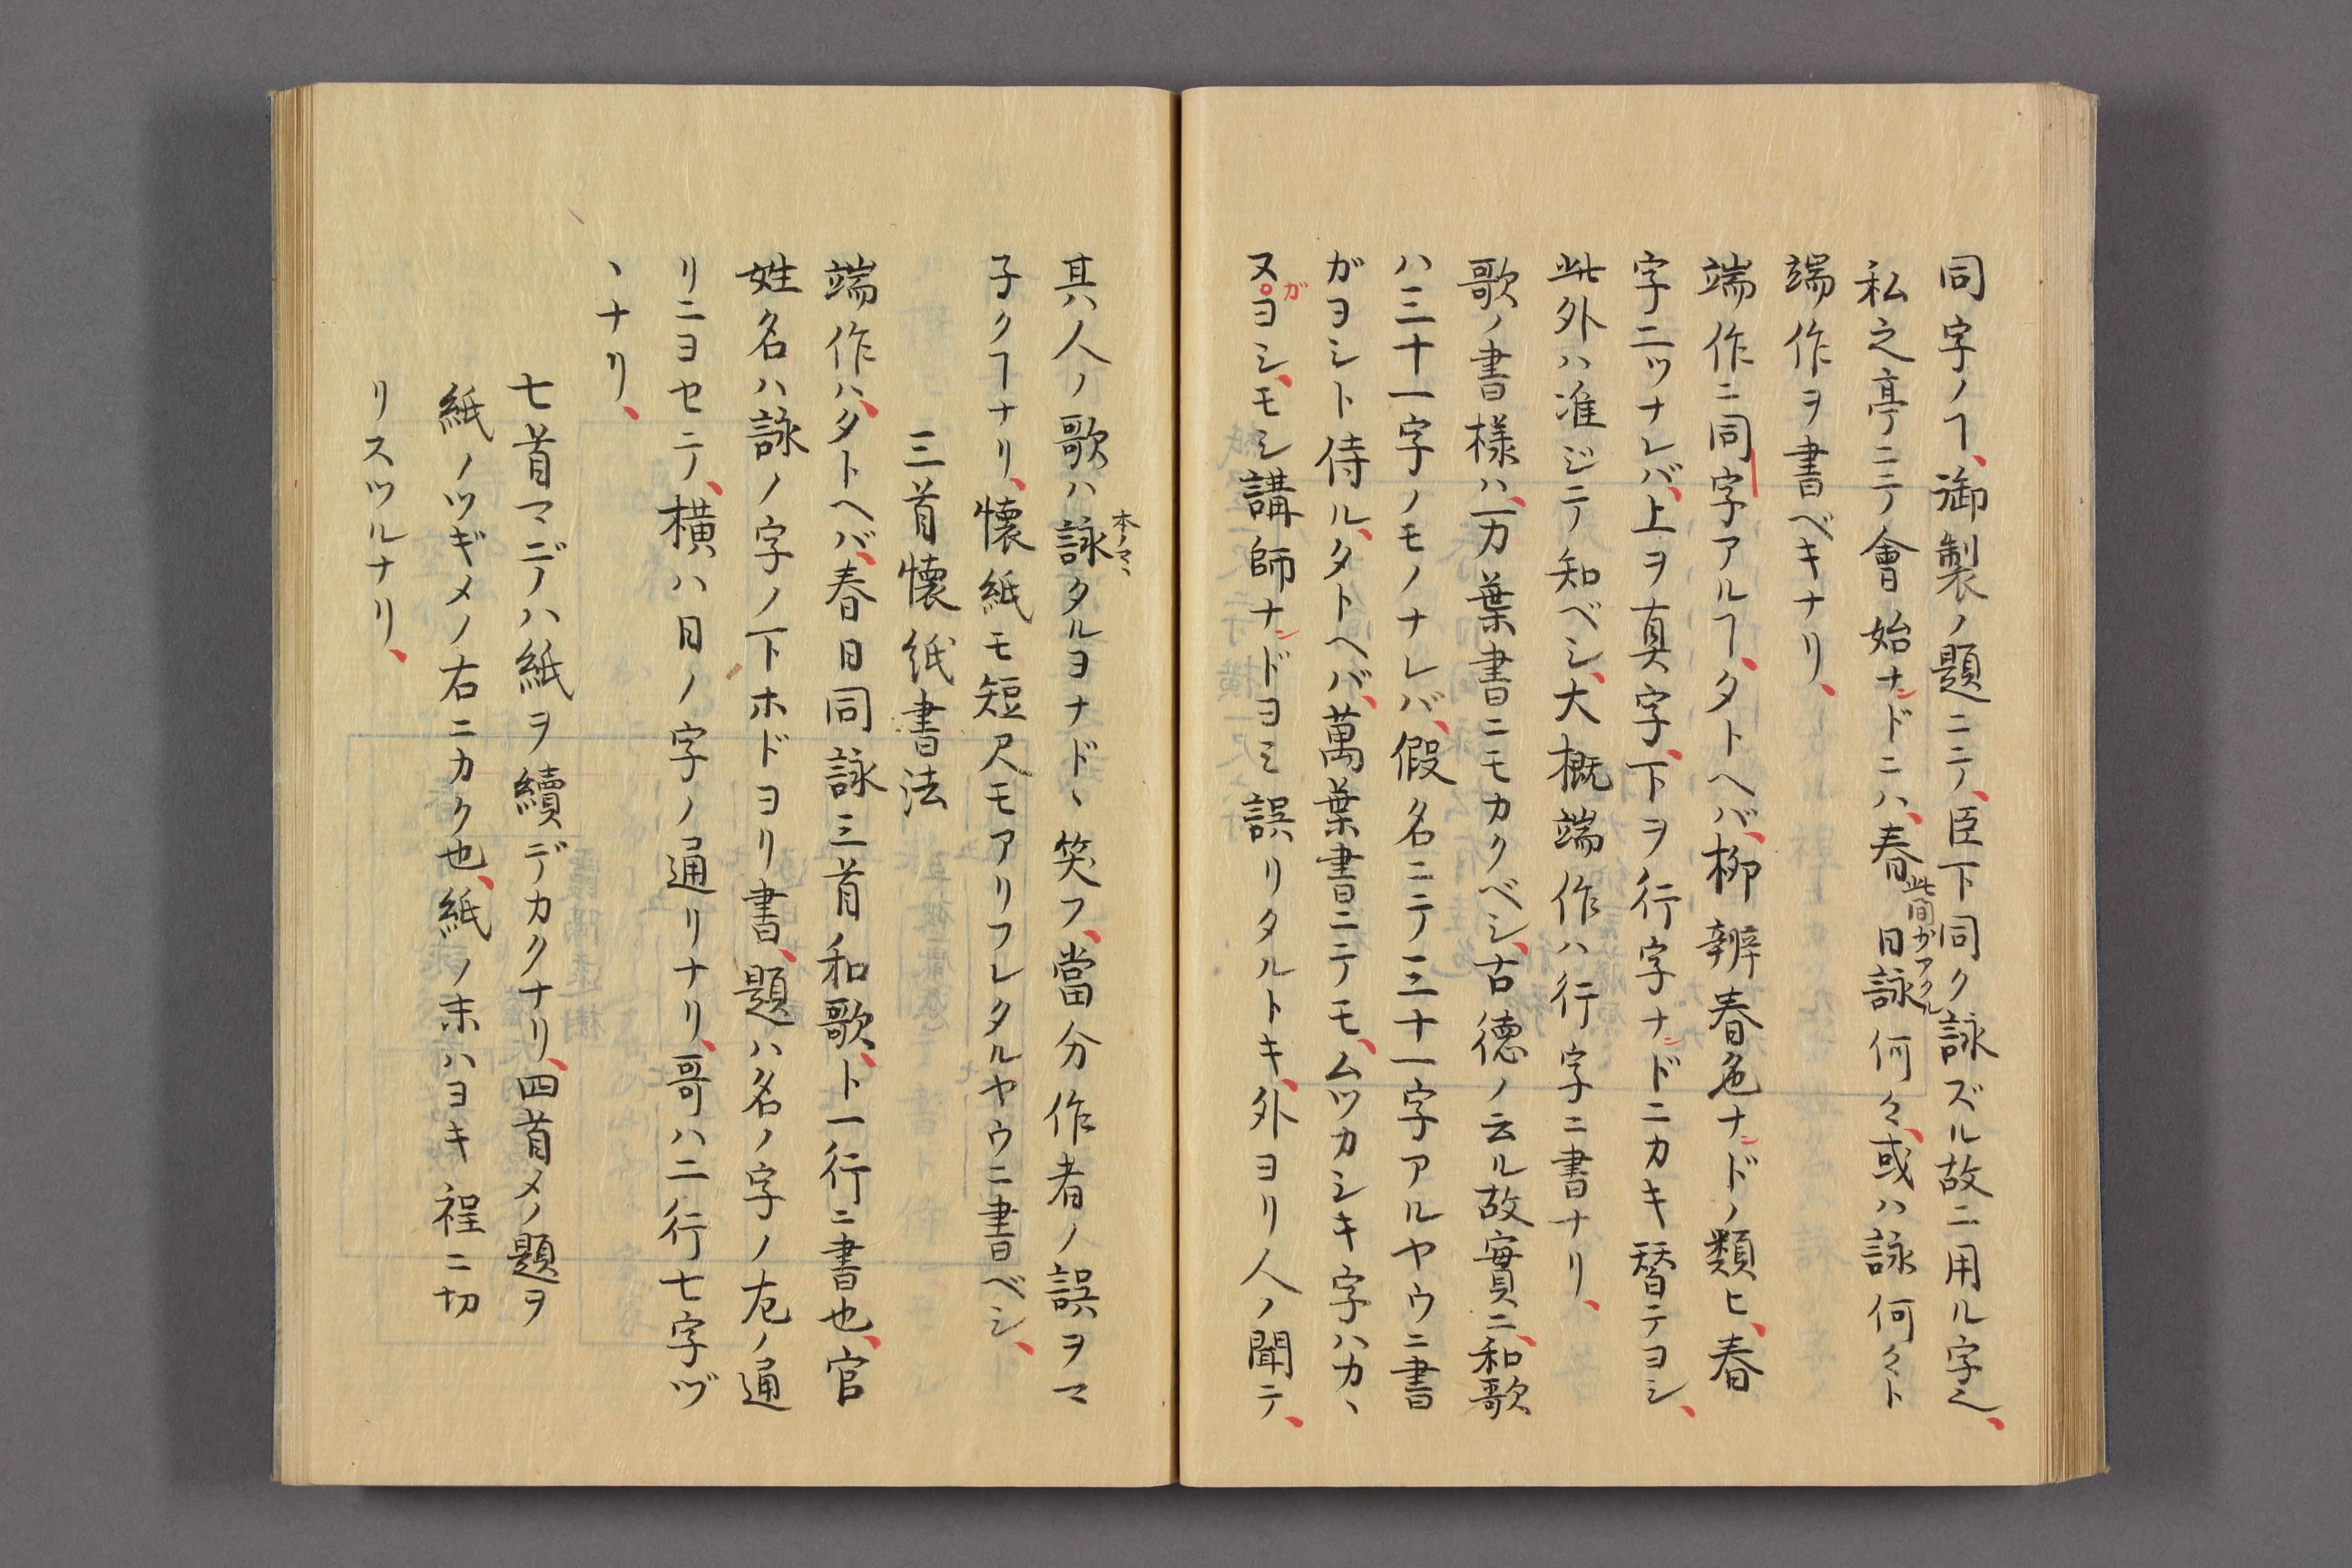 同字ノヿ、御製ノ題ニテ、臣下同ク詠ズル故ニ用ル字也、
私之亭ニテ會始ナンドニハ、春日詠何々、或ハ詠何々ト
此間ガアクル
端作ヲ書ベキナリ、
端作ニ同字アルヿ、タトヘバ、柳辨春色ナンドノ類ヒ、春
字二ツナレバ、上ヲ真字、下ヲ行字ナンドニカキ替テヨシ、
此外ハ准ジテ知ベシ、大概端作ハ行字ニ書ナリ、
歌ノ書様ハ、万葉書ニモカクベシ、古徳ノ云ル故實ニ、和歌
ハ三十一字ノモノナレバ、假名ニテ三十一字アルヤウニ書
ガヨシト侍ル、タトヘバ、萬葉書ニテモ、ムツカシキ字ハカヽ
ヌガヨシ、モシ講師ナンドヨミ誤リタルトキ、外ヨリ人ノ聞テ、
其ハ人ノ歌ハ詠タルヨナドヽ笑フ、當分作者ノ誤ヲマ
本ノマヽ
子クヿナリ、懐紙モ短尺モアリフレタルヤウニ書ベシ、
三首懐紙書法
端作ハ、タトヘバ、春日同詠三首和歌、ト一行ニ書也、官
姓名ハ詠ノ字ノ下ホドヨリ書、題ハ名ノ字ノ左ノ通
リニヨセテ、横ハ日ノ字ノ通リナリ、哥ハ二行七字ヅ
ヽナリ、
七首マデハ紙ヲ續デカクナリ、四首メノ題ヲ
紙ノツギメノ右ニカク也、紙ノ末ハヨキ程ニ切
リスツルナリ、